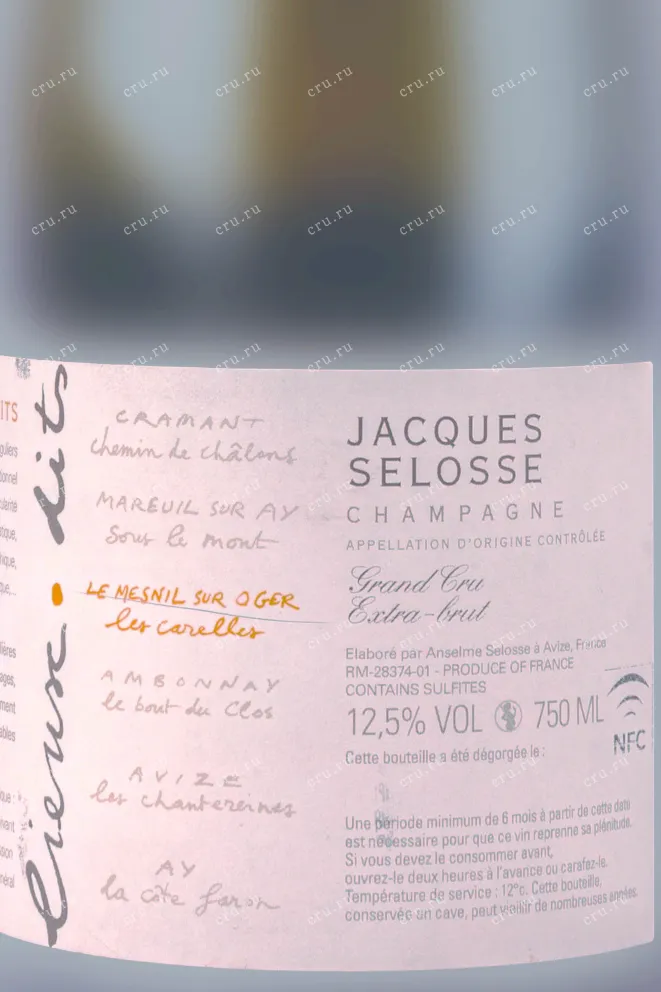 lieux-dits
CRAMANT
chemin de châlons
MAREUIL SUR AY
Sous le mont
LE MESNIL SUR OGER
les carelles
AMBONNAY
le bout du clos
AVIZE
les chantereines
AY
la côte faron
JACQUES
SELOSSE
CHAMPAGNE
APPELLATION D'ORIGINE CONTRÔLÉE
Grand Cru
Extra-brut
Elaboré par Anselme Selosse à Avize, France
RM-28374-01 - PRODUCE OF FRANCE
CONTAINS SULFITES
12,5% VOL 750 ML
NFC
Cette bouteille a été dégorgée le :
Une période minimum de 6 mois à partir de cette date
est nécessaire pour que ce vin reprenne sa plénitude.
Si vous devez le consommer avant,
ouvrez-le deux heures à l'avance ou carafez-le.
Température de service : 12°c. Cette bouteille,
conservée en cave, peut vieillir de nombreuses années.
cru.ru